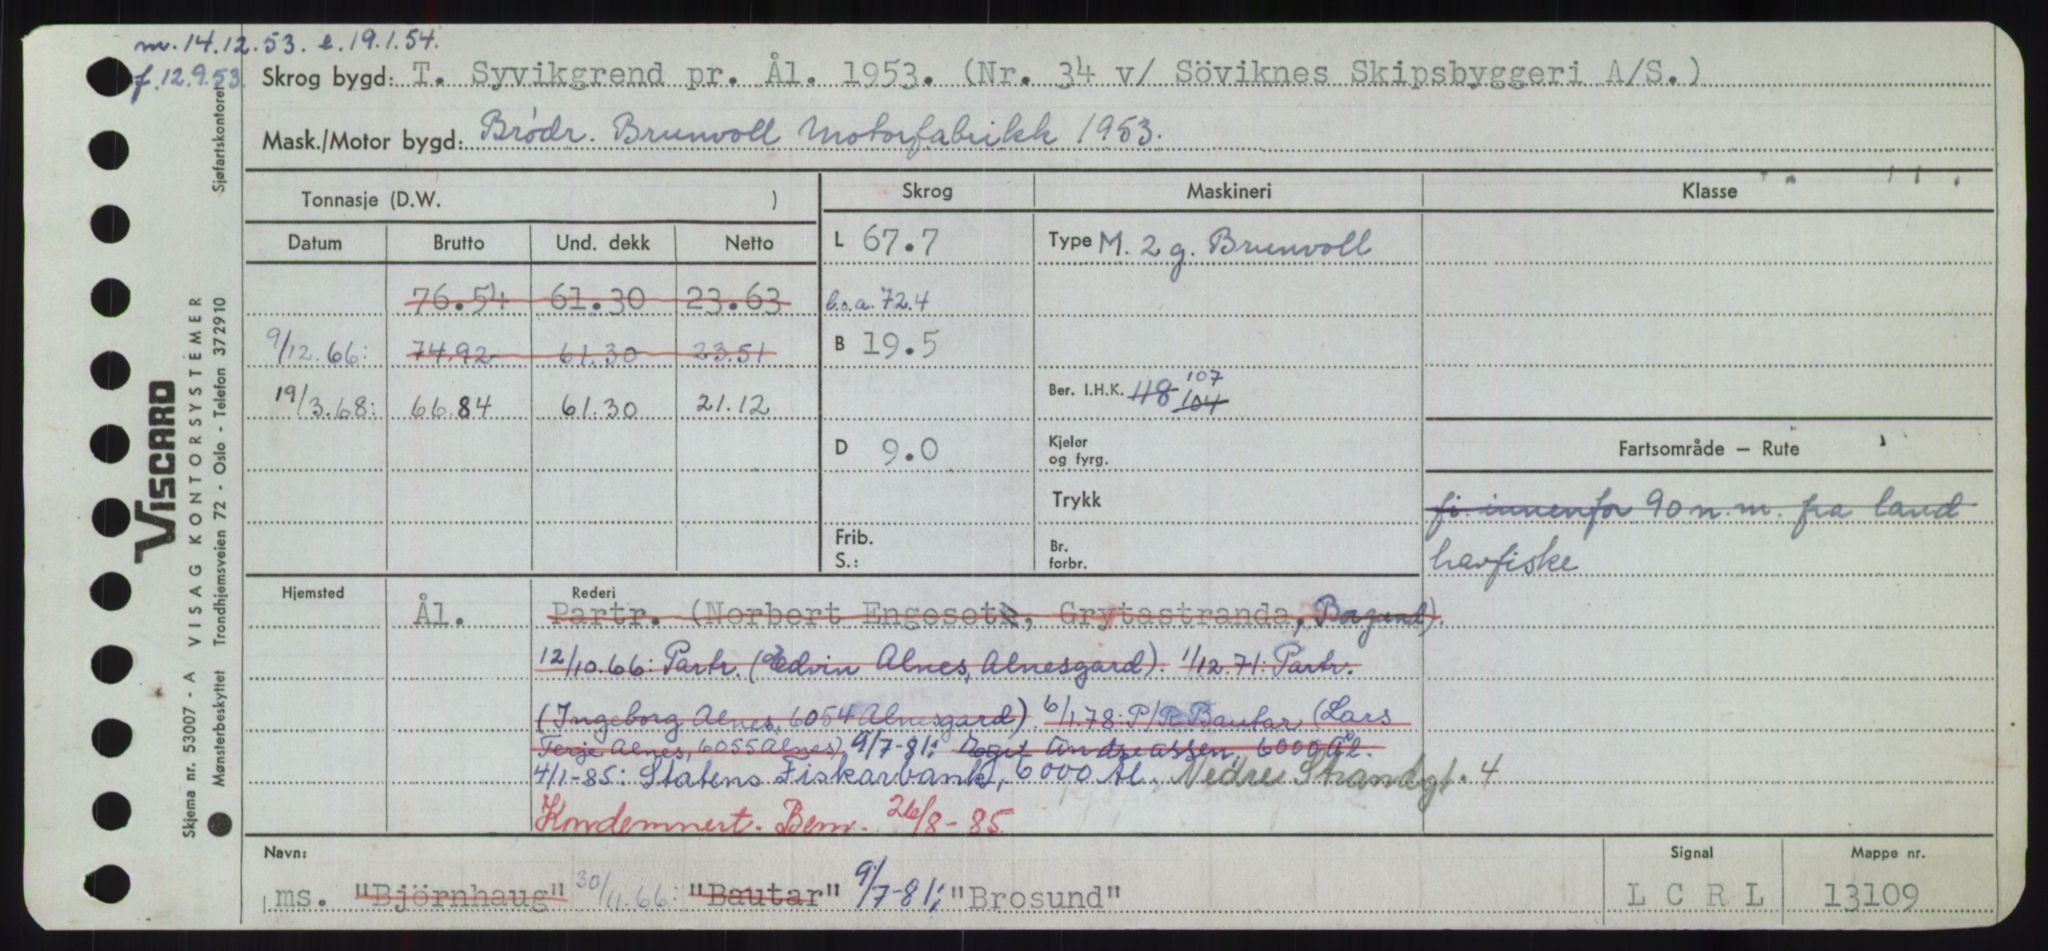 m. 14.12.53. e. 19.1.54.
f. 12.9.53.
Skrog bygd: T. Syvikgrend pr. Ål. 1953. (Nr. 34 v/ Söviknes Skipsbyggeri A/S.)
Mask./Motor bygd: Brødr. Brunvoll Motorfabrikk 1953.
Tonnasje (D.W. )
Skrog
Maskineri
Klasse
Datum Brutto Und. dekk Netto
L 67.7
Type M. 2 g. Brunvoll
76.54 61.30 23.63
l.o.a. 72.4
9/12.66: 74.92 61.30 23.51
B 19.5
19/3.68: 66.84 61.30 21.12
Ber. I.H.K. 48 104 107
D 9.0
Kjeler
og fyrg.
Fartsområde — Rute
Trykk
fi innenfor 90 n.m. fra land
Frib.
S.:
Br.
forbr.
havfiske
Hjemsted
Rederi
Ål. Partr. (Norbert Engeset, Grytastranda, Borgund).
12/10.66: Partr. (Edvin Alnes, Alnesgard). 1/12.71: Partr.
(Ingeborg Alnes, 6054 Alnesgard) 6/1.78: P/R Bautar (Lars
Terje Alnes, 6055 Alnes) 9/7-81: Andreassen, 6000 Ål.
4/1-85: Statens Fiskarbank, 6000 Ål. Nedre Strandgt. 4
Kondemnert. Bem. 26/8-85
Navn:
Signal
Mappe nr.
ms. "Björnhaug" 30/11.66: "Bautar" 9/7-81: "Brosund"
L C R L
13109
Sjøfartskontoret
VISCARD
VISAG KONTORSYSTEMER
Trondhjemsveien 72 - Oslo - Telefon 372910
Skjema nr. 53007 - A
Mønsterbeskyttet